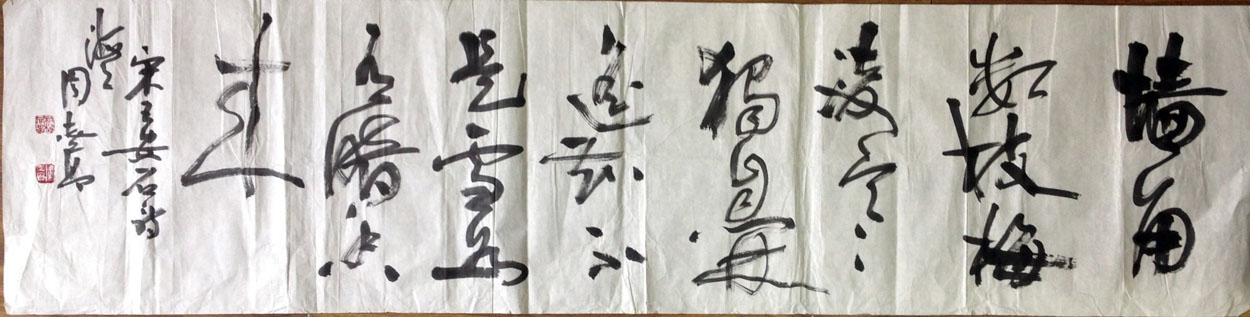 墙角
数枝梅
凌寒
独自開
遥知不
是雪为
有暗香
来
宋王安石诗
周